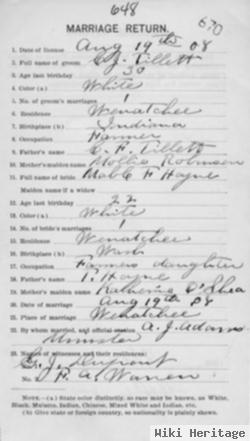 648
670
MARRIAGE RETURN.
1. Date of license Aug 19th 08
2. Full name of groom C. J. Tillett
3. Age last birthday 30
4. Color (a) White
5. No. of groom's marriages 1
6. Residence Wenatchee
7. Birthplace (b) Indiana
8. Occupation Farmer
9. Father's name C. F. Tillett
10. Mother's maiden name Mollie Robinson
11. Full name of bride Mable F Hayne
Maiden name if a widow
12. Age last birthday 22
13. Color (a) White
14. No. of bride's marriages 1
15. Residence Wenatchee
16. Birthplace (b) Wash
17. Occupation Farmers daughter
18. Father's name T. Hayne
19. Mother's maiden name Katherine O'Shea
20. Date of marriage Aug 19th 08
21. Place of marriage Wenatchee
22. By whom married, and official station A. J. Adams
Minister
23. Names of witnesses and their residences:
G. J. Dupont
No. F. A. Warren
NOTE.—(a) State color distinctly, so race may be known, as White,
Black, Mulatto, Indian, Chinese, Mixed White and Indian, etc.
(b) Give state or foreign country, so nationality is plainly shown.
Wiki Heritage